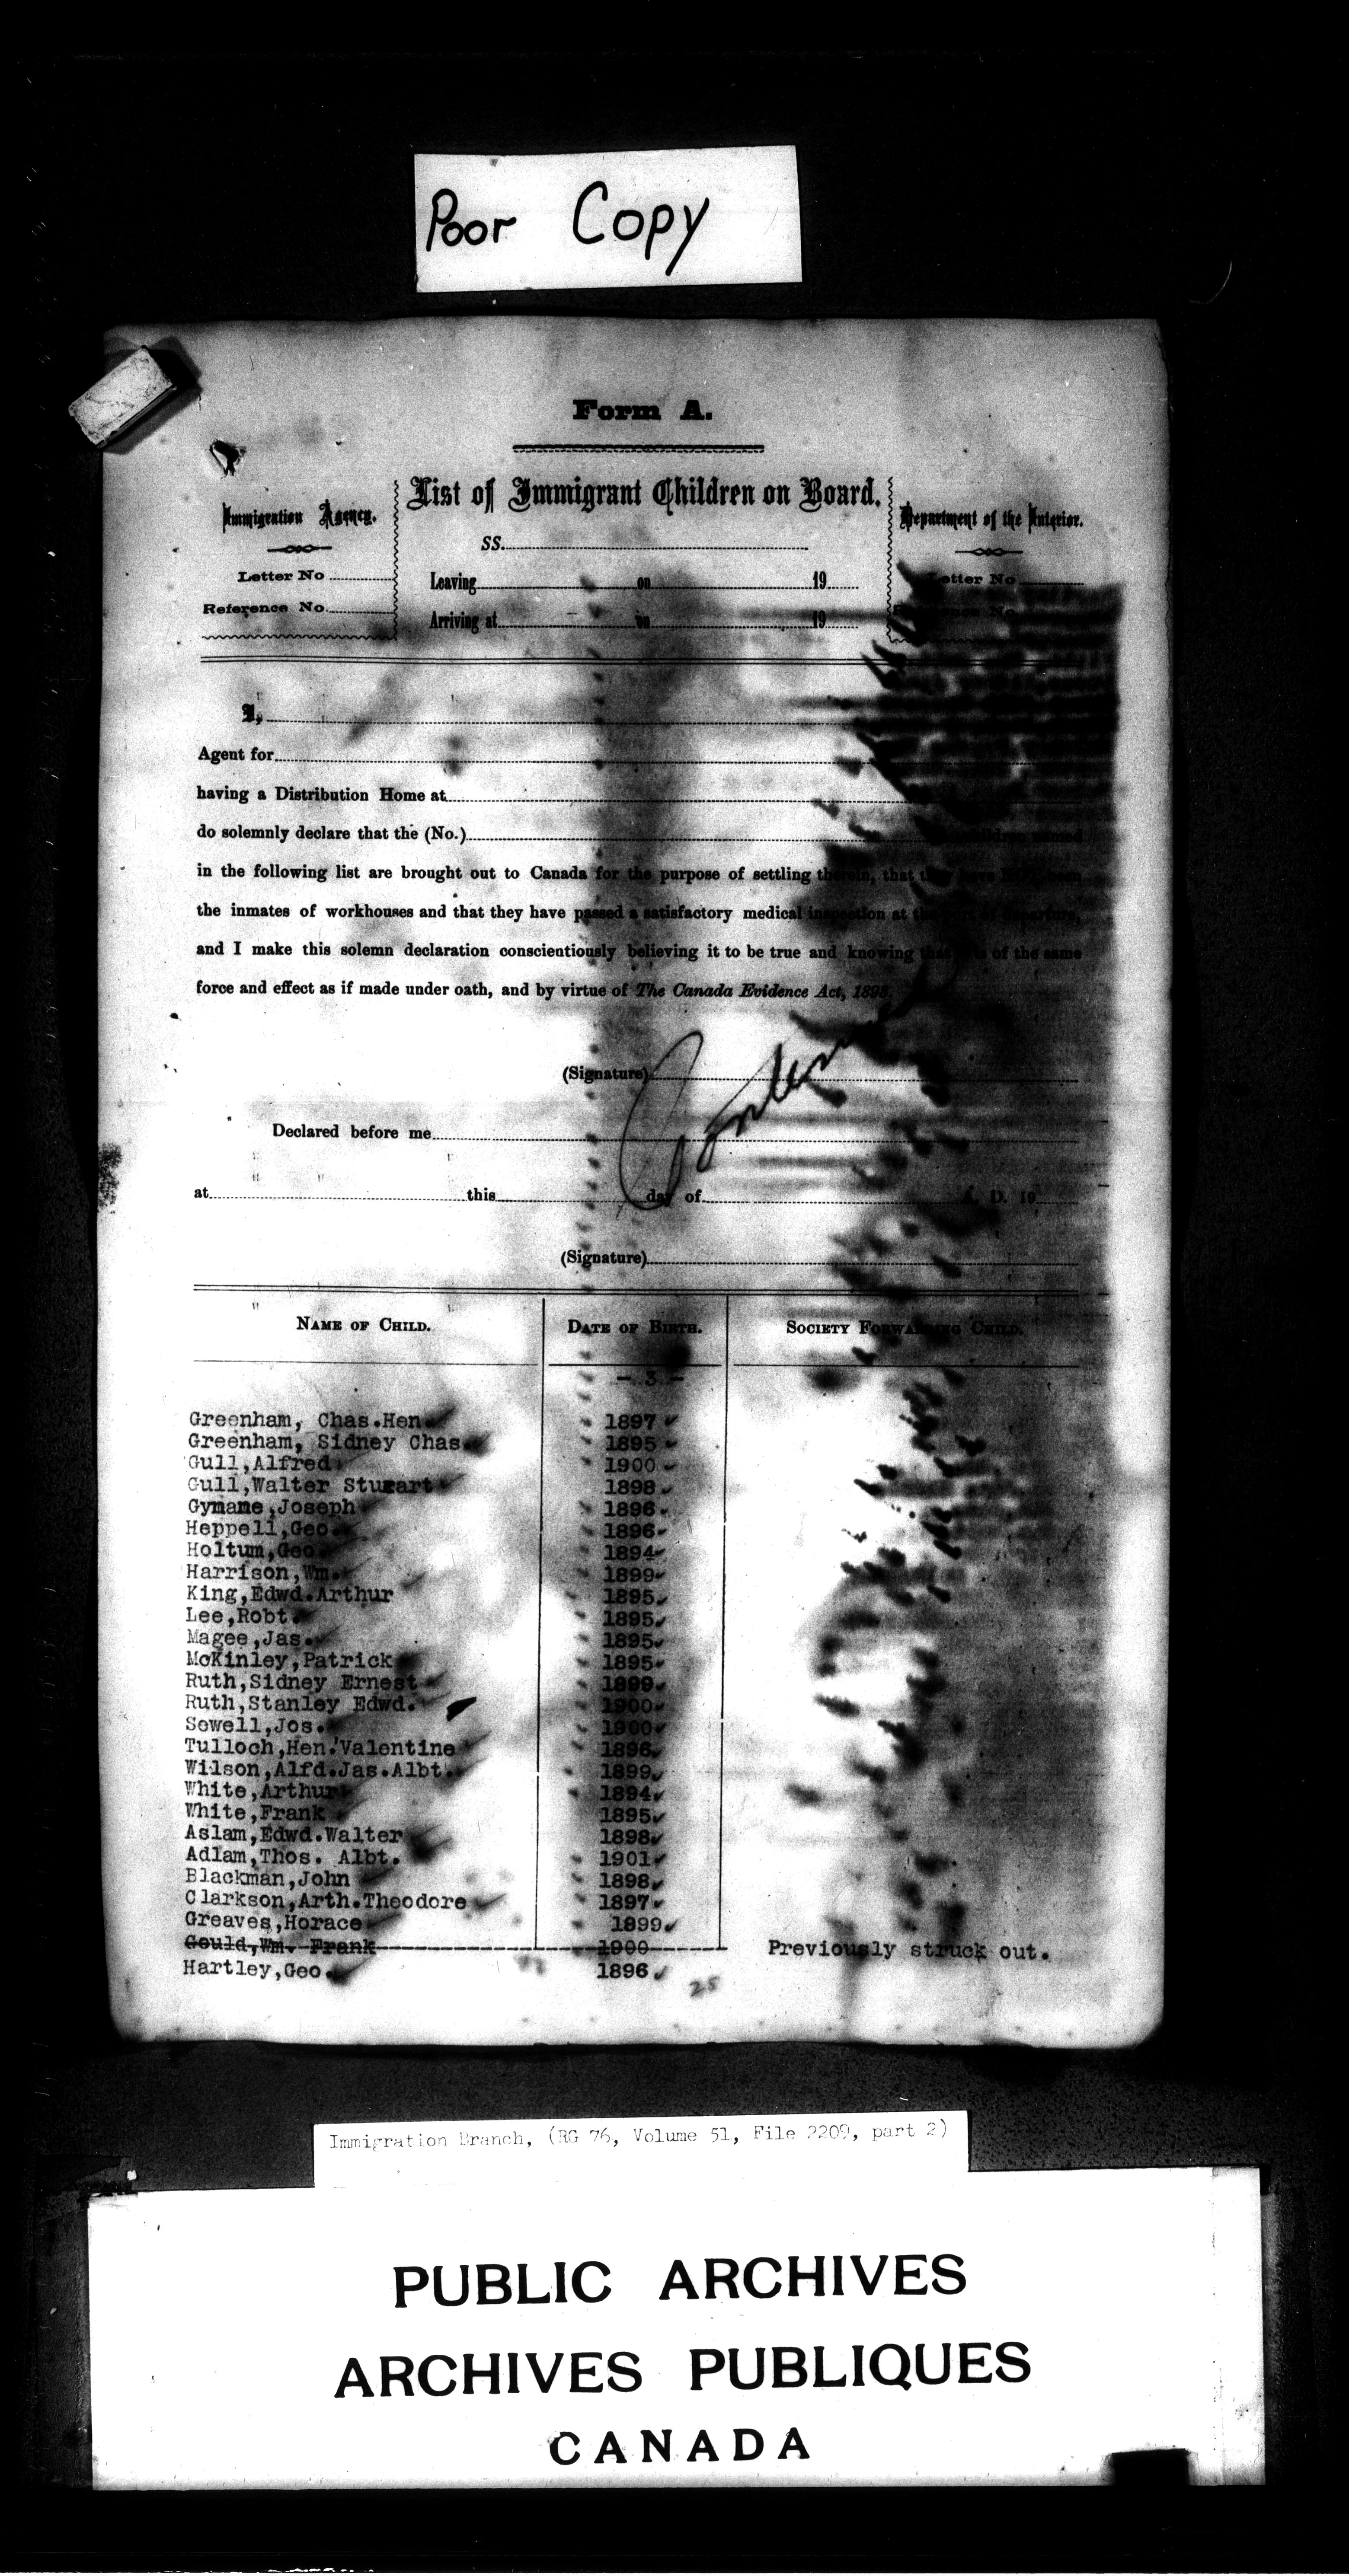 Poor Copy
Form A.
List of Immigrant Children on Board.
Immigration Agency.
Department of the Interior.
SS.
Letter No
Leaving on 19
Letter No
Reference No.
Arriving at on 19
No
I,
Agent for
having a Distribution Home at
do solemnly declare that the (No.)
in the following list are brought out to Canada for the purpose of settling therein, that they have
the inmates of workhouses and that they have passed a satisfactory medical inspection at the
and I make this solemn declaration conscientiously believing it to be true and knowing that of the same
force and effect as if made under oath, and by virtue of The Canada Evidence Act, 1893.
(Signature)
Declared before me
at this day of A. D. 19
(Signature)
NAME OF CHILD. DATE OF BIRTH. SOCIETY FORWARDING CHILD.
- 3 -
Greenham, Chas.Hen. 1897
Greenham, Sidney Chas. 1895
Gull,Alfred 1900
Gull,Walter Stuart 1898
Gymane,Joseph 1896
Heppell,Geo. 1896
Holtum,Geo. 1894
Harrison,Wm. 1899
King,Edwd.Arthur 1895
Lee,Robt. 1895
Magee,Jas. 1895
McKinley,Patrick 1895
Ruth,Sidney Ernest 1899
Ruth,Stanley Edwd. 1900
Sewell,Jos. 1900
Tulloch,Hen.Valentine 1896
Wilson,Alfd.Jas.Albt. 1899
White,Arthur 1894
White,Frank 1895
Aslam,Edwd.Walter 1898
Adlam,Thos. Albt. 1901
Blackman,John 1898
Clarkson,Arth.Theodore 1897
Greaves,Horace 1899
Gould,Wm. Frank 1900 Previously struck out.
Hartley,Geo. 1896
25
Immigration Branch, (RG 76, Volume 51, File 2209, part 2)
PUBLIC ARCHIVES
ARCHIVES PUBLIQUES
CANADA